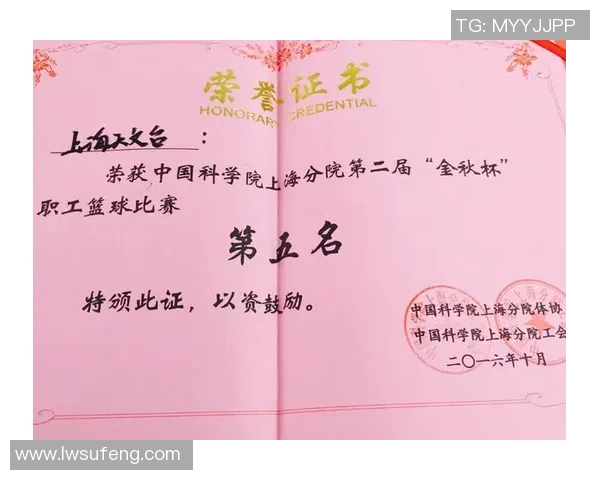 TG: MYYJJPP
荣誉证书
HONORARY CREDENTIAL
上海天文台：
荣获中国科学院上海分院第二届“金秋杯”
职工篮球比赛
第五名
特颁此证，以资鼓励。
中国科学院上海分院体协
中国科学院上海分院工会
二〇一六年十月
www.lwsufeng.com